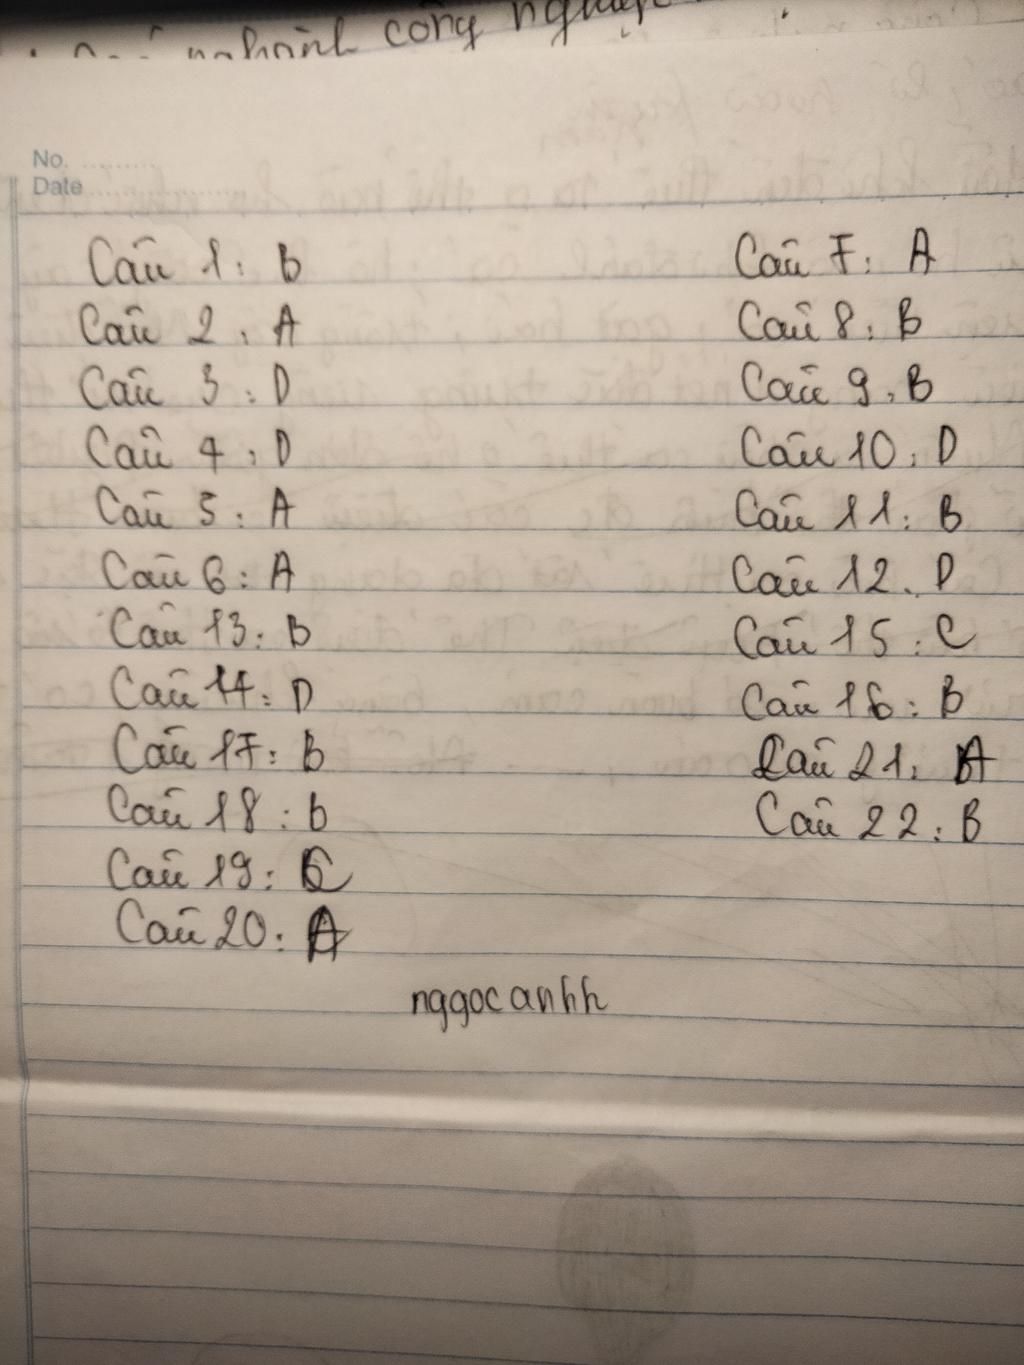 nghành công nghiệp
No.
Date
Câu 1: B
Câu 2: A
Câu 3: D
Câu 4: D
Câu 5: A
Câu 6: A
Câu 13: B
Câu 14: D
Câu 17: B
Câu 18: b
Câu 19: C
Câu 20: A
Câu 7: A
Câu 8: B
Câu 9: B
Câu 10: D
Câu 11: B
Câu 12: D
Câu 15: C
Câu 16: B
Câu 21: A
Câu 22: B
nggocanhh